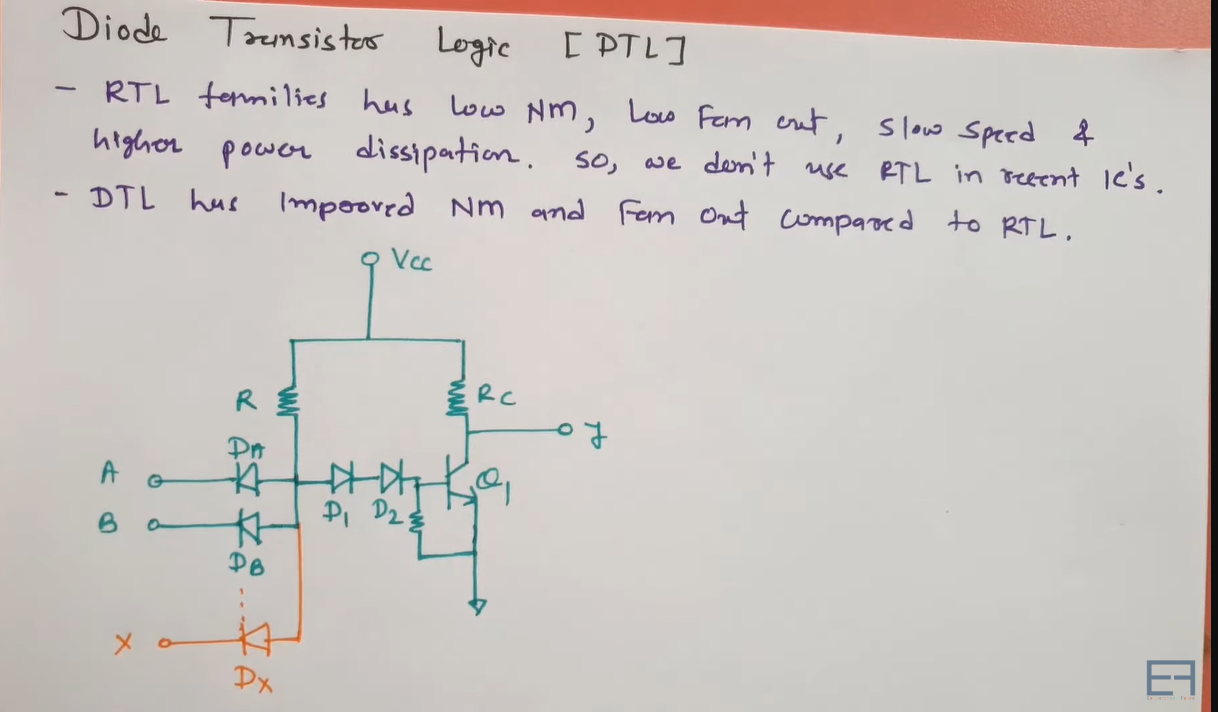 Diode Transistor Logic [DTL]
- RTL families has low NM, Low Fan out, slow speed &
higher power dissipation. So, we don't use RTL in recent IC's.
- DTL has Improved NM and Fan Out compared to RTL.
Vcc
R
RC
Y
DA
A
Q1
D1 D2
B
DB
X
DX
EF